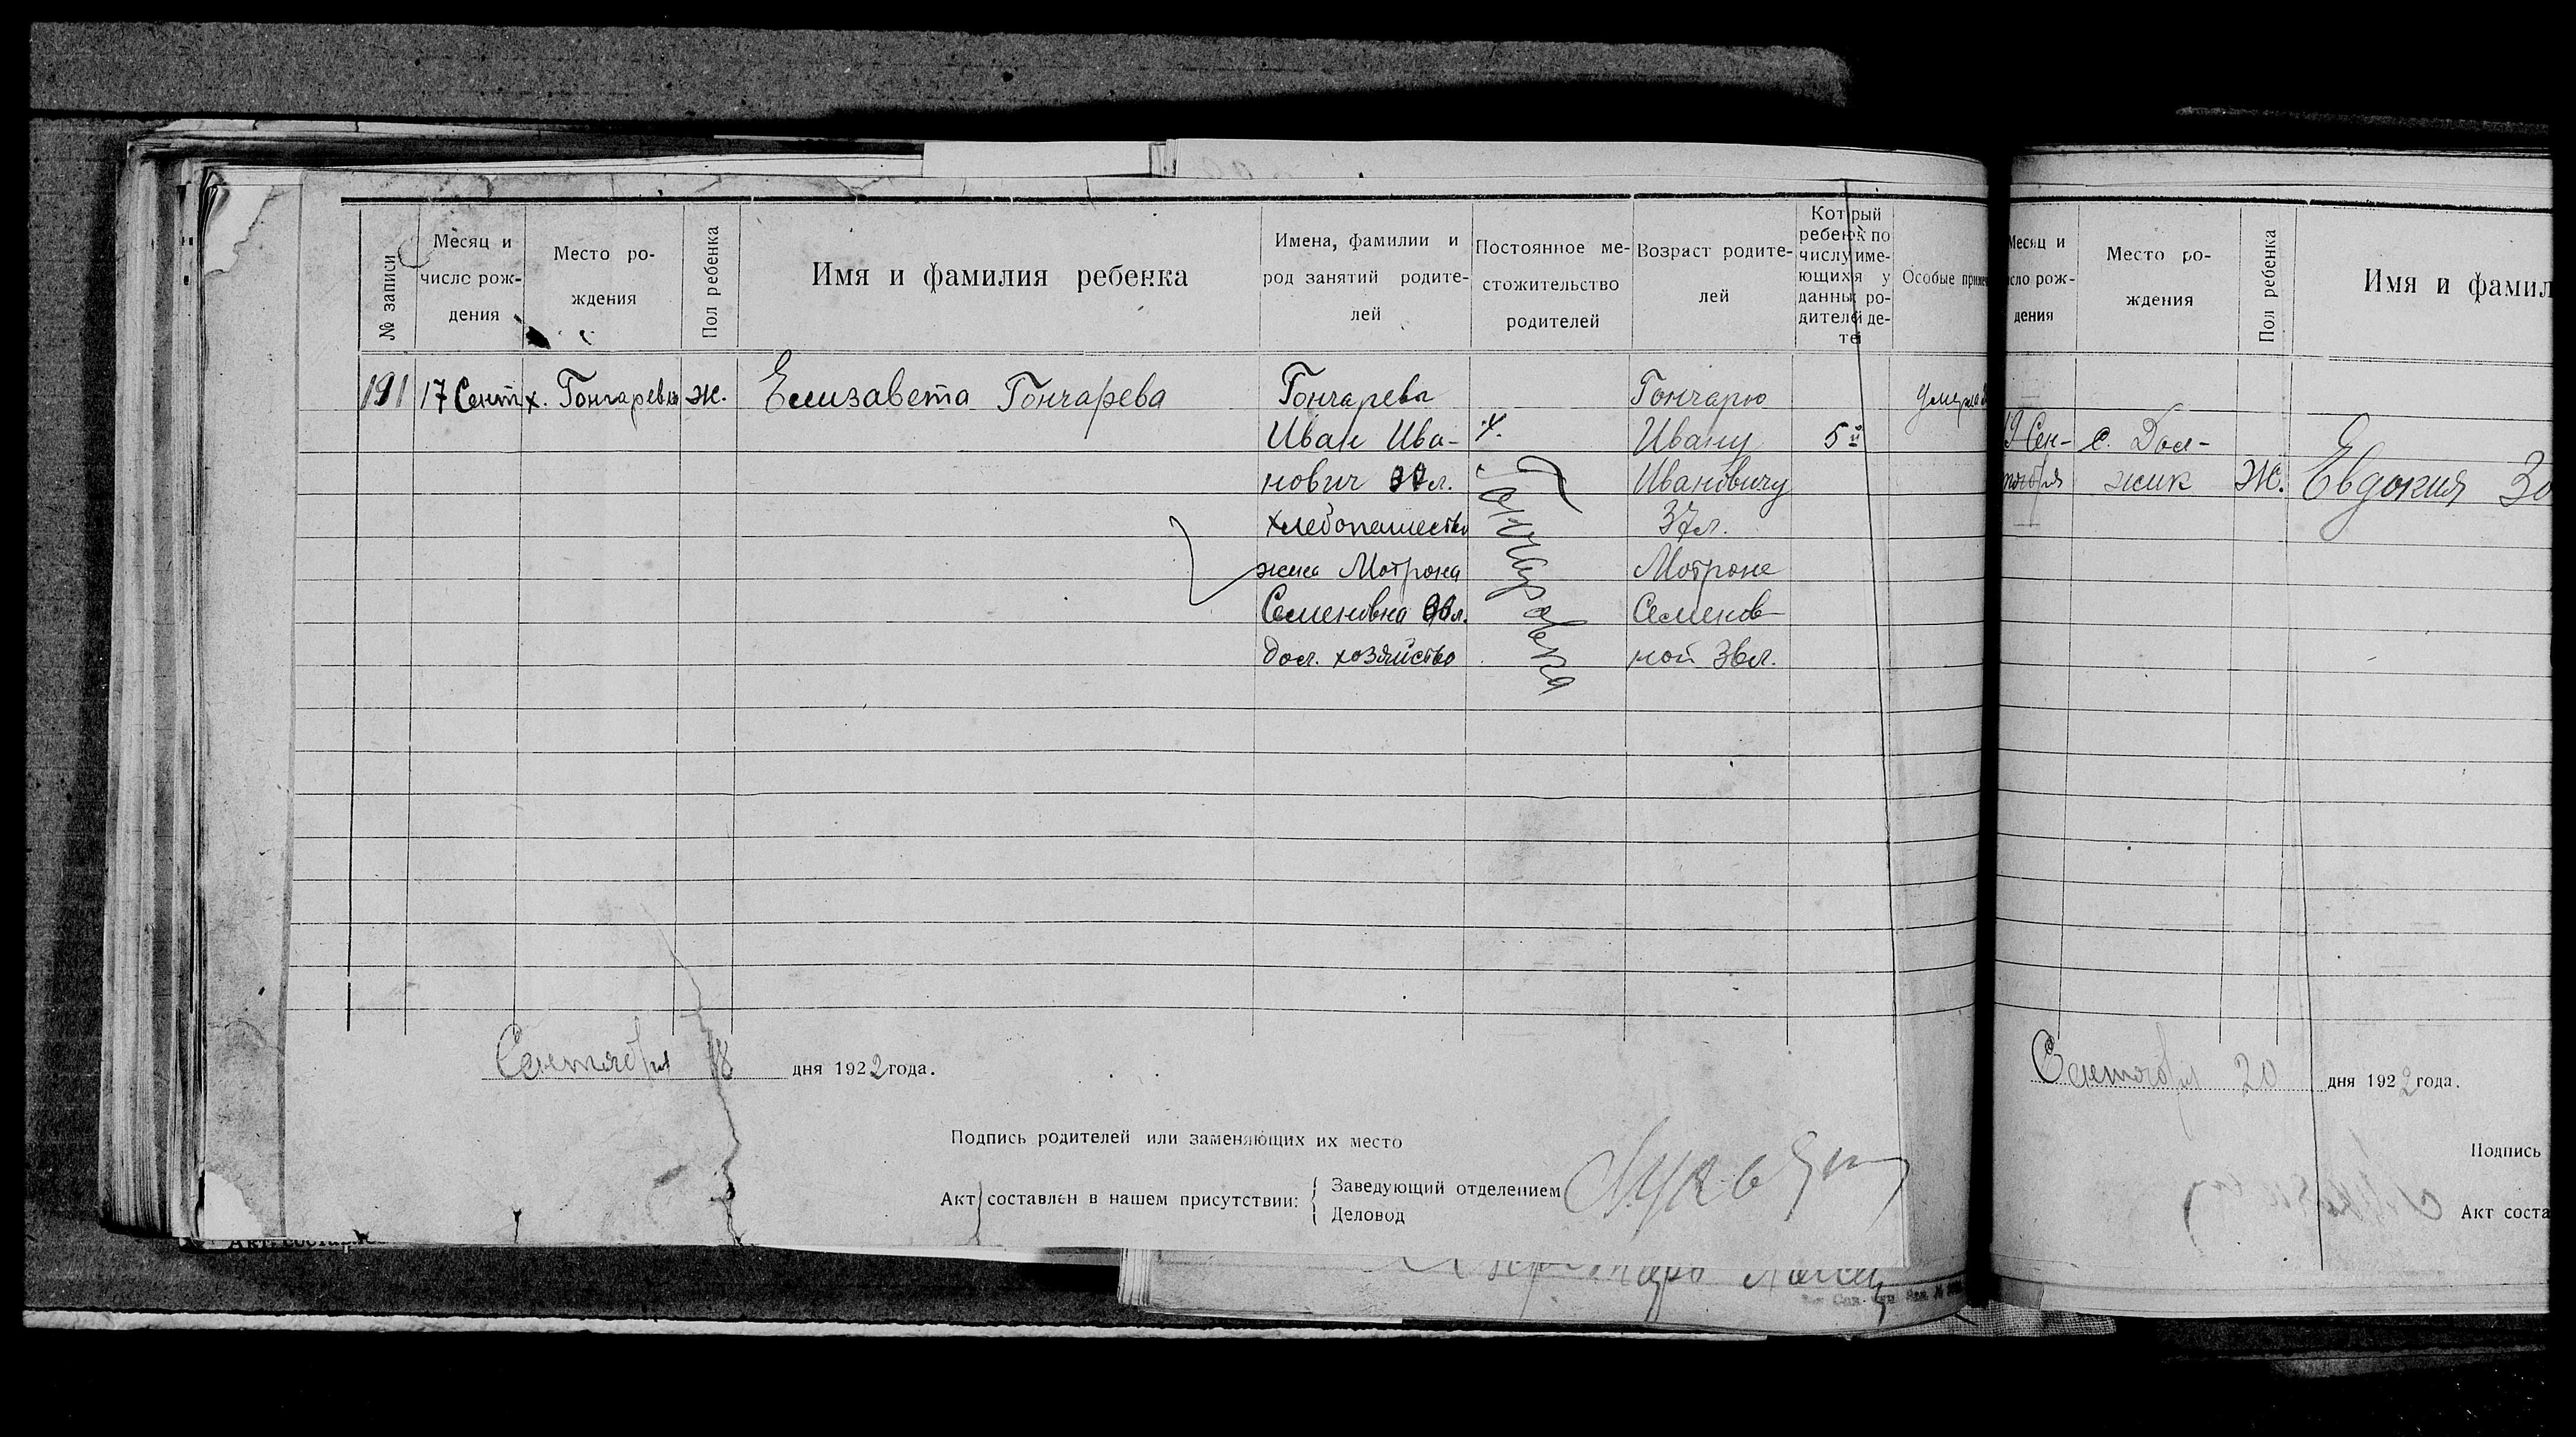 № записи
Месяц и
число рож-
дения
Место ро-
ждения
Пол ребенка
Имя и фамилия ребенка
Имена, фамилии и
род занятий родите-
лей
Постоянное ме-
стожительство
родителей
Возраст родите-
лей
Который
ребенок по
числу име-
ющихся у
данных ро-
дителей де-
тей
Особые
191 17 Сент х. Гончаревка ж. Елизавета Гончарева
Гончарева
Иван Ива-
нович 37 л.
хлебопашество
жена Мотрона
Семеновна 36 л.
дом. хозяйство
х.
Гончаровка
Гончарю
Ивану
Ивановичу
37 л.
Мотроне
Семенов-
ной 36 л.
5й
Умерла
Сентября 18 дня 1922 года.
Подпись родителей или заменяющих их место
Акт составлен в нашем присутствии:
Заведующий отделением
Деловод
Месяц и
число рож-
дения
Место ро-
ждения
Пол ребенка
Имя и фамил
19 Сен-
тября
с. Дол-
жик
Ж.
Евдокия
Сентября 20 дня 1922 года.
Подпись
Акт соста